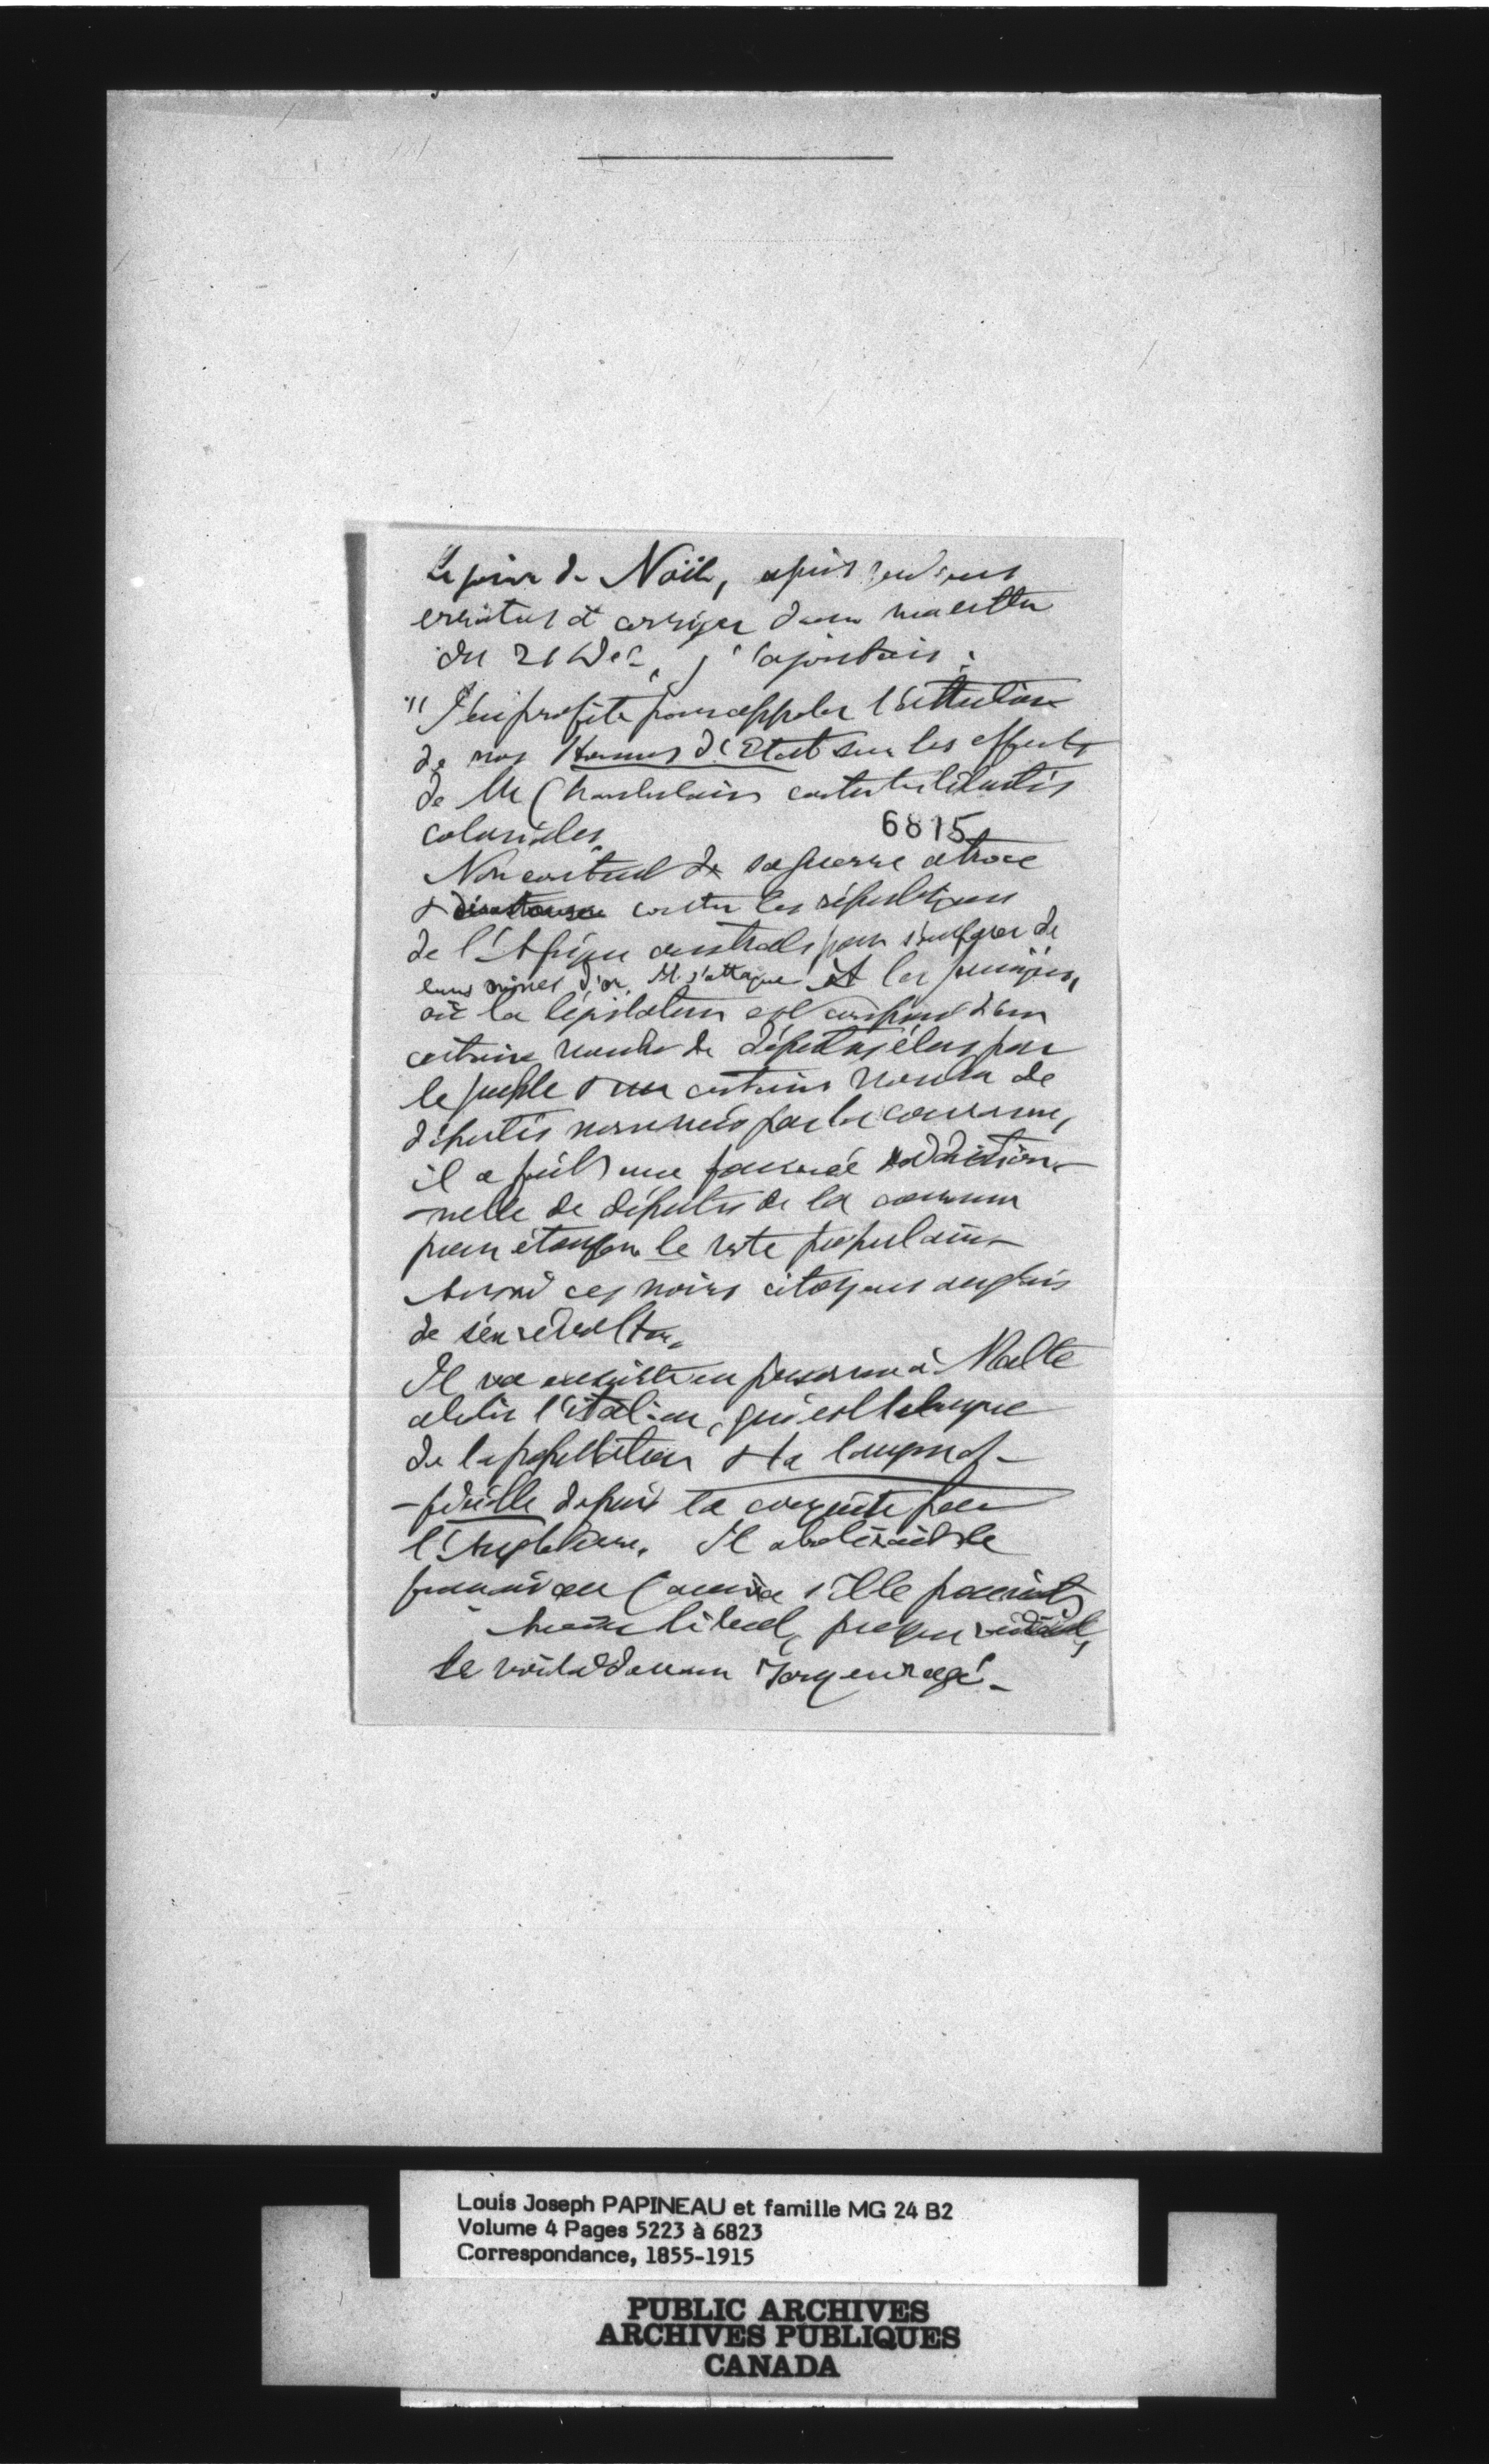 Le jour de Noël, après
erratas à corriger dans ma lettre
du 21 Dec, j'ajoutais :
"J'en profite pour appeler l'attention
de nos Hommes d'Etat sur les efforts
de M Chamberlain contre les libertés
coloniales.
6815
Non content de sa guerre atroce
& contre les républiques
de l'Afrique australe pour s'emparer de
leurs mines d'or, Il s'attaque à la
où la législature est composée d'un
certain nombre de députés élus par
le peuple & un certain nombre de
députés nommés par la couronne,
il a fait une fournée addition-
-nelle de députés de la couronne
pour étouffer le vote populaire
ces noirs citoyens anglais
de s'en révolter.
Il va ensuite en personne à Malte
abolir l'italien, qui est la langue
de la population & la langue of-
-ficielle depuis la conquête par
l'Angleterre. Il abolirait le
français au Canada s'il le pouvait
libéral, presque radical,
le voilà devenu Tory enragé.
Louis Joseph PAPINEAU et famille MG 24 B2
Volume 4 Pages 5223 à 6823
Correspondance, 1855-1915
PUBLIC ARCHIVES
ARCHIVES PUBLIQUES
CANADA